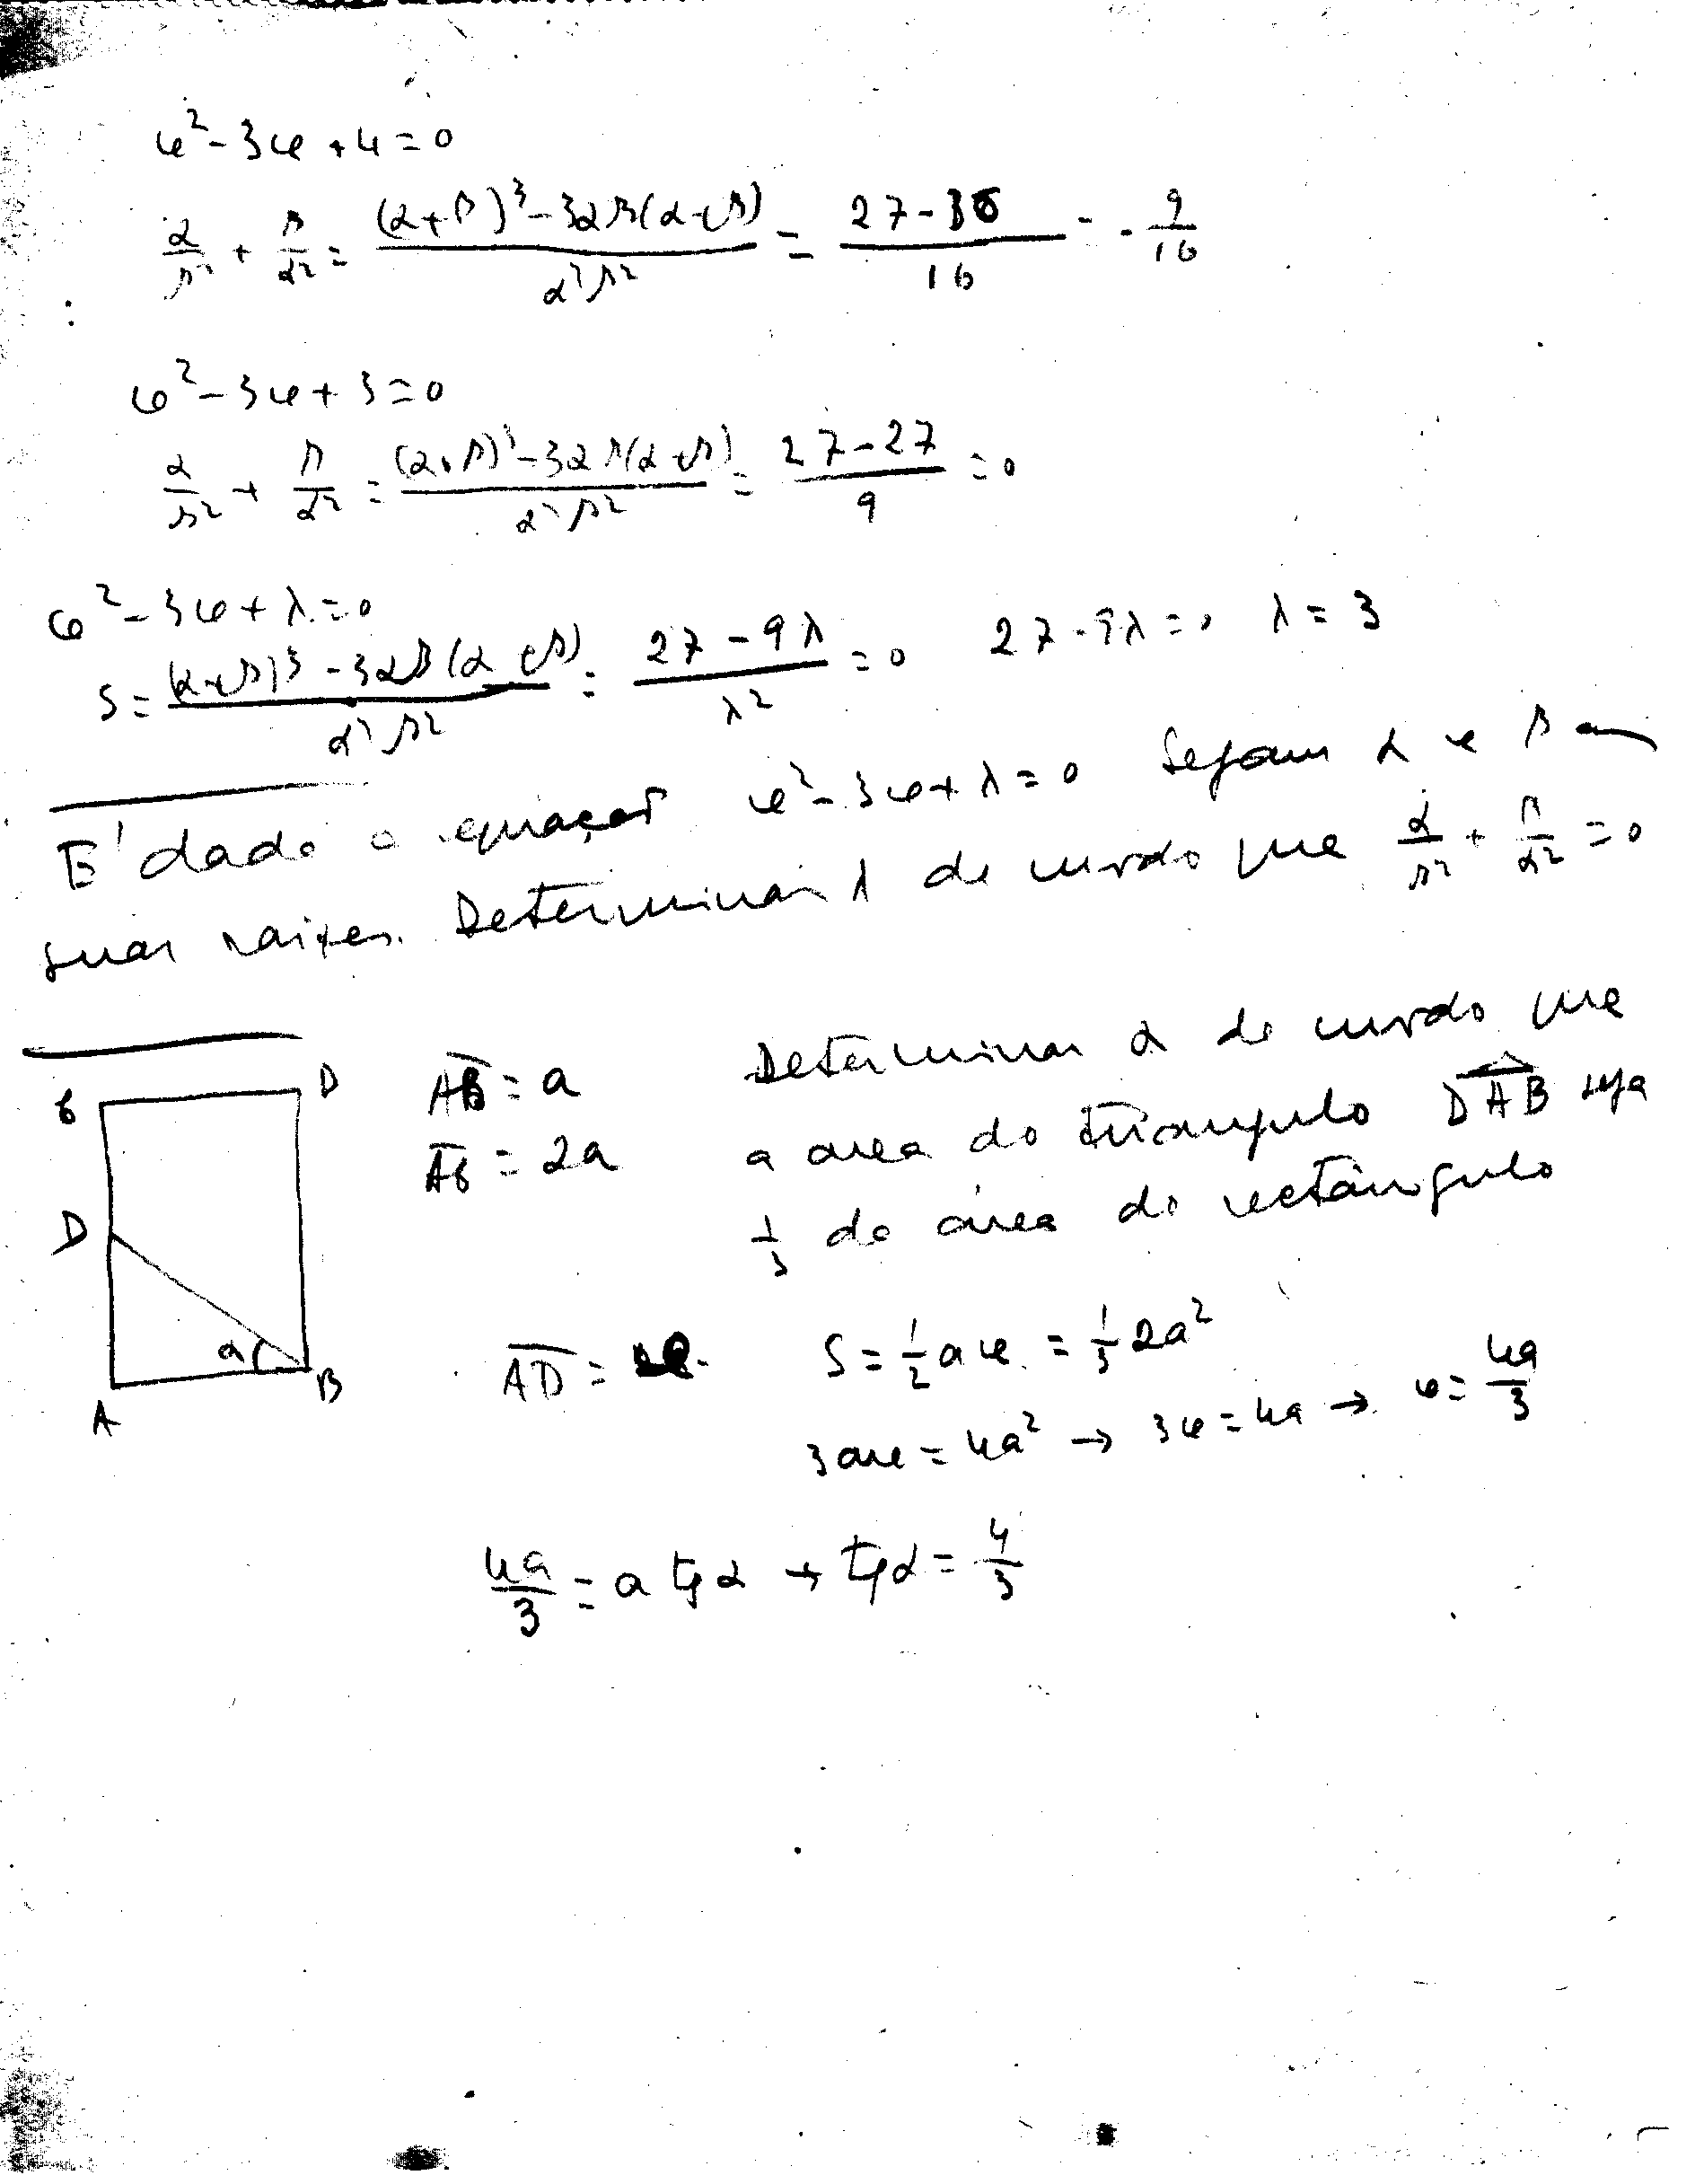 x² - 3x + 4 = 0
α/β² + β/α² = ((α+β)³ - 3αβ(α+β))/(α²β²) = (27-36)/16 = - 9/16
x² - 3x + 3 = 0
α/β² + β/α² = ((α+β)³ - 3αβ(α+β))/(α²β²) = (27-27)/9 = 0
x² - 3x + λ = 0
S = ((α+β)³ - 3αβ(α+β))/(α²β²) = (27 - 9λ)/λ² = 0 27 - 9λ = 0 λ = 3
É dada a equaçaõ x² - 3x + λ = 0 Sejam α e β as
suas raizes. Determinar λ de modo que α/β² + β/α² = 0
C D
D
α
A B
AB = a
AC = 2a
Determinar α de modo que
a area do triangulo DAB seja
1/3 da área do rectângulo
AD = x S = 1/2 a x = 1/3 2a²
3ax = 4a² → 3x = 4a → x = 4a/3
4a/3 = a tg α → tg α = 4/3